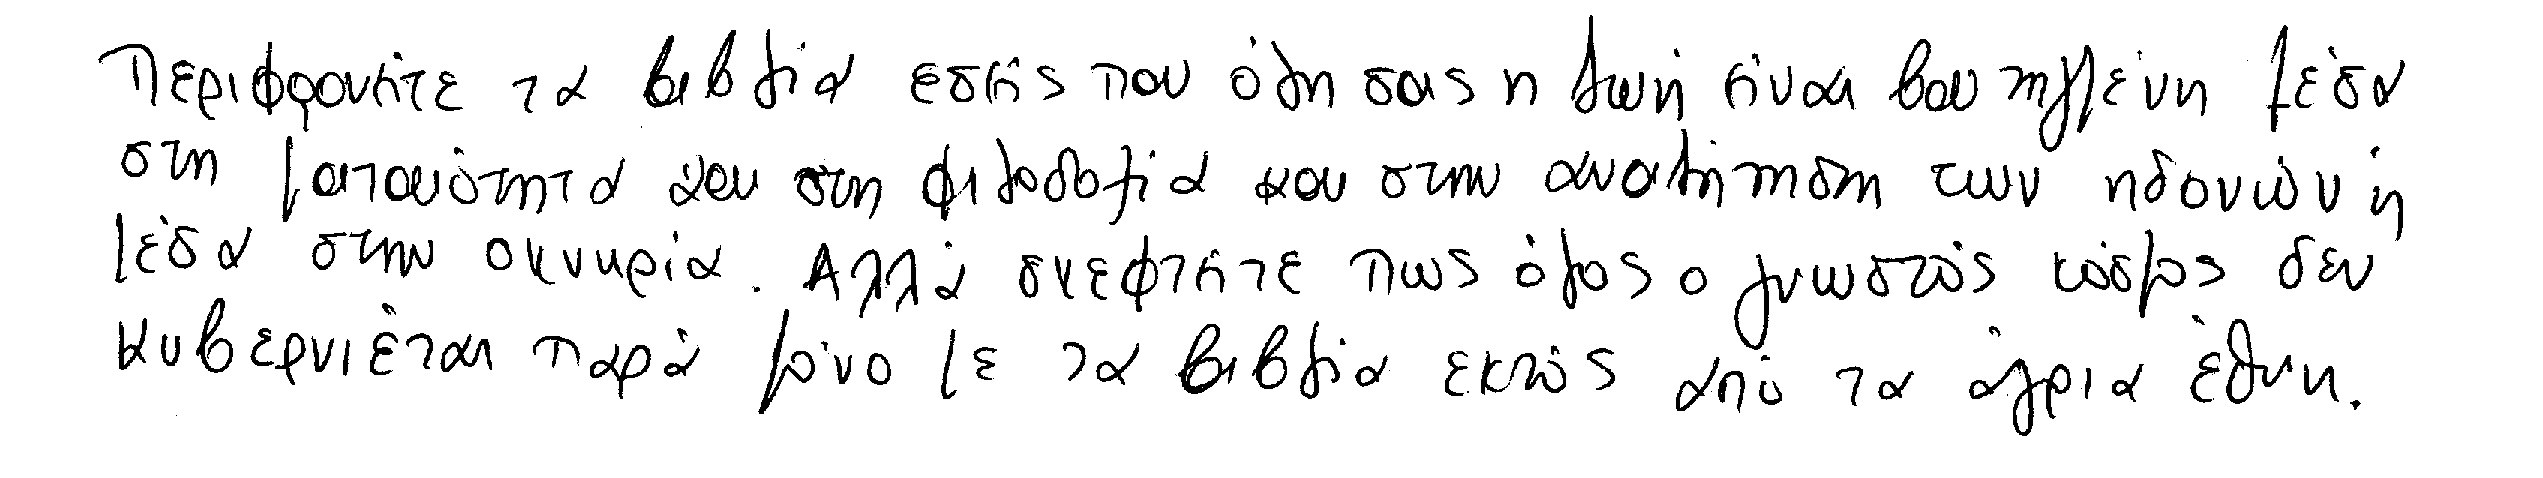 Περιφρονείτε τα βιβλία εσείς που όλη σας η ζωή είναι βουτηγμένη μέσα
στη ματαιότητα και στη φιλοδοξία και στην αναζήτηση των ηδονών ή
μέσα στην οκνηρία. Αλλά σκεφτείτε πως όλος ο γνωστός κόσμος δεν
κυβερνιέται παρά μόνο με τα βιβλία εκτός από τα άγρια έθνη.